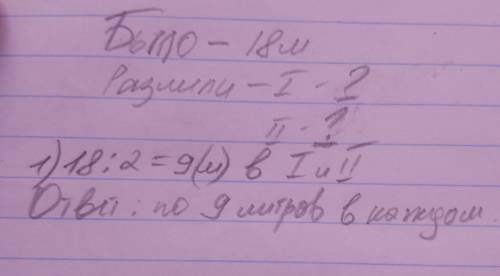 Было – 18л
Разлили – I – ?
II – ?
1) 18:2=9(л) в I и II
Ответ: по 9 литров в каждом